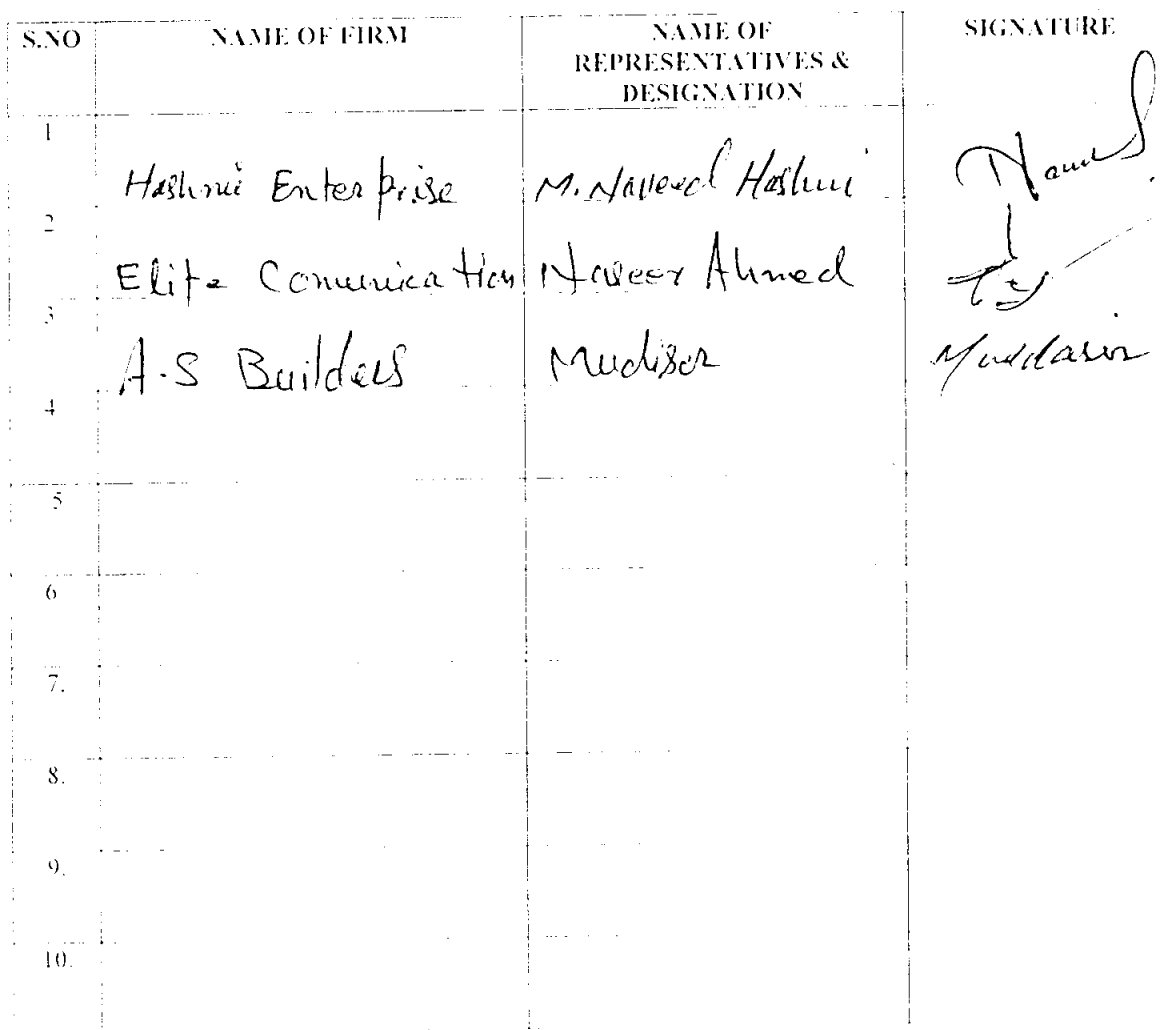 S.NO NAME OF FIRM NAME OF SIGNATURE
REPRESENTATIVES &
DESIGNATION
1 Hashmi Enterprise M. Naveed Hashmi
2 Elite Comunication Ahmed
3 A.S Builders Mudiser Muddasir
4
5
6
7.
8.
9.
10.